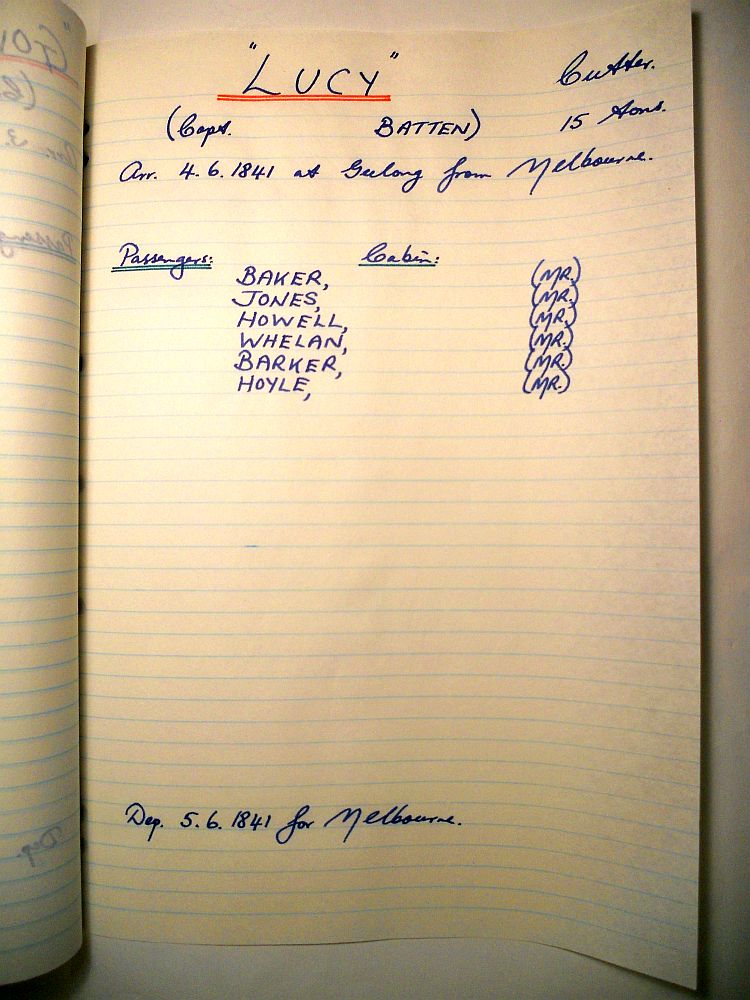 "LUCY" Cutter.
(Capt. BATTEN) 15 tons.
Arr. 4.6.1841 at Geelong from Melbourne.
Passengers: Cabin:
BAKER, (MR.)
JONES, (MR.)
HOWELL, (MR.)
WHELAN, (MR.)
BARKER, (MR.)
HOYLE, (MR.)
Dep. 5.6.1841 for Melbourne.